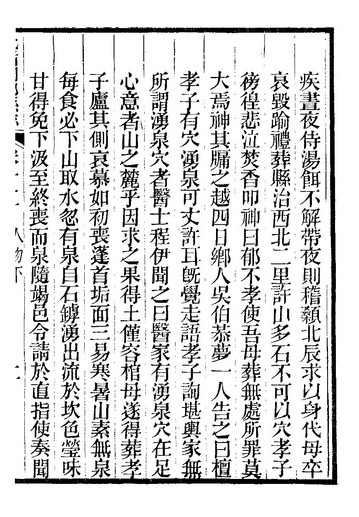 疾晝夜侍湯餌不解帶夜則稽顙北辰求以身代母卒
哀毀踰禮葬縣治西北二里許山多石不可以穴孝子
徬徨悲泣焚香叩神曰郁不孝使吾母葬無處所罪莫
大焉神其牖之越四日鄉人吳伯恭夢一人告之曰檀
孝子有穴湧泉可丈許耳旣覺走語孝子詢堪輿家無
所謂湧泉穴者醫士程伊聞之曰醫家有湧泉穴在足
心意者山之麓乎因求之果得土僅容棺母遂得葬孝
子廬其側哀慕如初喪蓬首垢面三易寒暑山素無泉
每食必下山取水忽有泉自石罅湧出流於坎色瑩味
甘得免下汲至終喪而泉隨竭邑令請於直指使奏聞
人物下